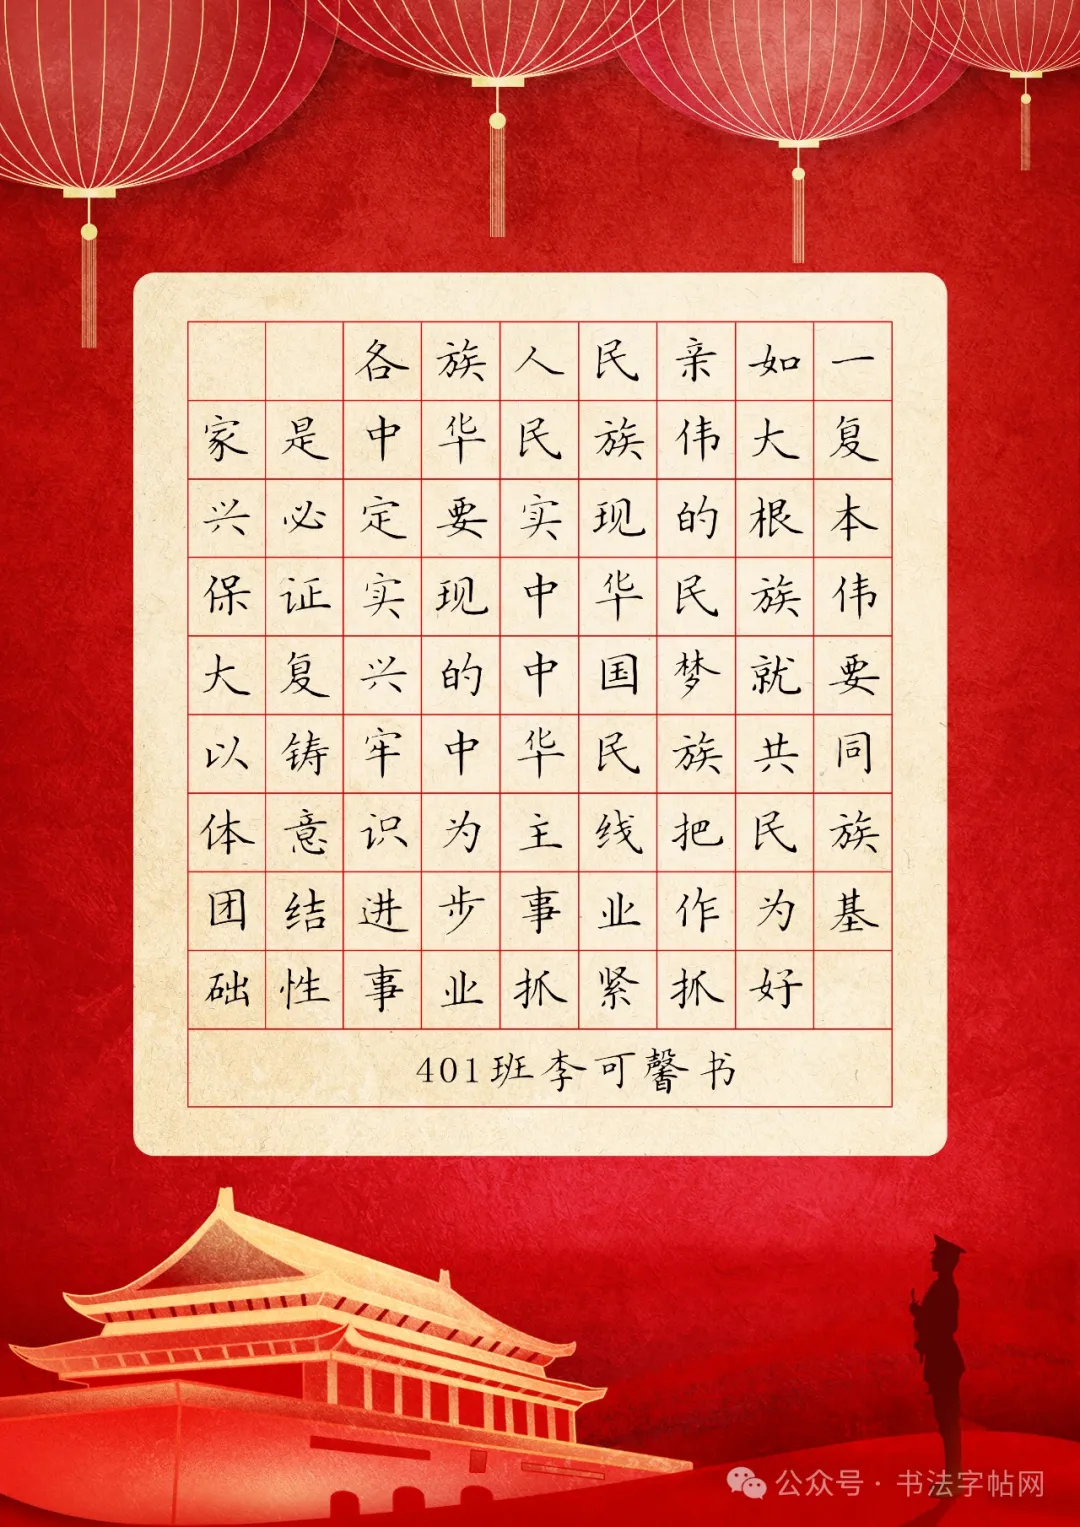 各族人民亲如一
家是中华民族伟大复
兴必定要实现的根本
保证实现中华民族伟
大复兴的中国梦就要
以铸牢中华民族共同
体意识为主线把民族
团结进步事业作为基
础性事业抓紧抓好
401班李可馨书
公众号·书法字帖网